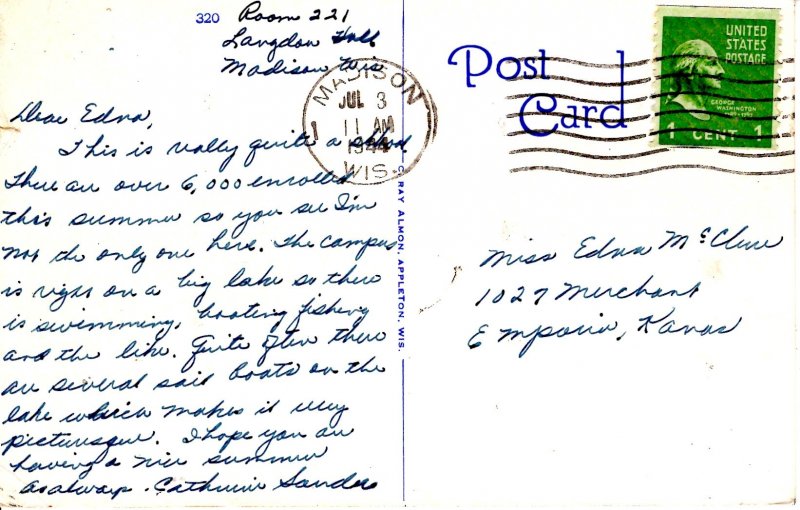 320 Room 221
Langdon Hall
Madison Wis
Dear Edna,
This is really quite a school.
There are over 6,000 enrolled
this summer so you see I'm
not the only one here. The campus
is right on a big lake so there
is swimming, boating fishing
and the like. Quite often there
are several sail boats on the
lake which makes it very
picturesque. I hope you are
having a nice summer
As always - Catherine Sanders
MADISON
JUL 3
11 AM
1944
WIS.
1
C. RAY ALMON, APPLETON, WIS.
Post
Card
UNITED
STATES
POSTAGE
GEORGE
WASHINGTON
1789-1797
1 CENT 1
Miss Edna McClure
1027 Merchant
Emporia, Kansas